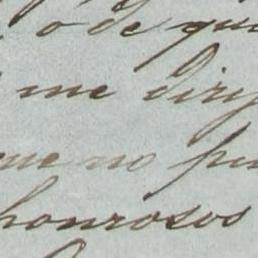 ó de qu
me dirij
ue no pu
honrosos